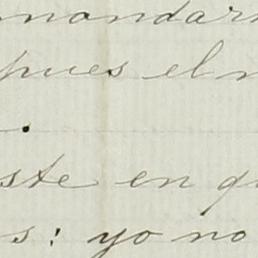 mandar
pues el
.
ste en q
s: yo no